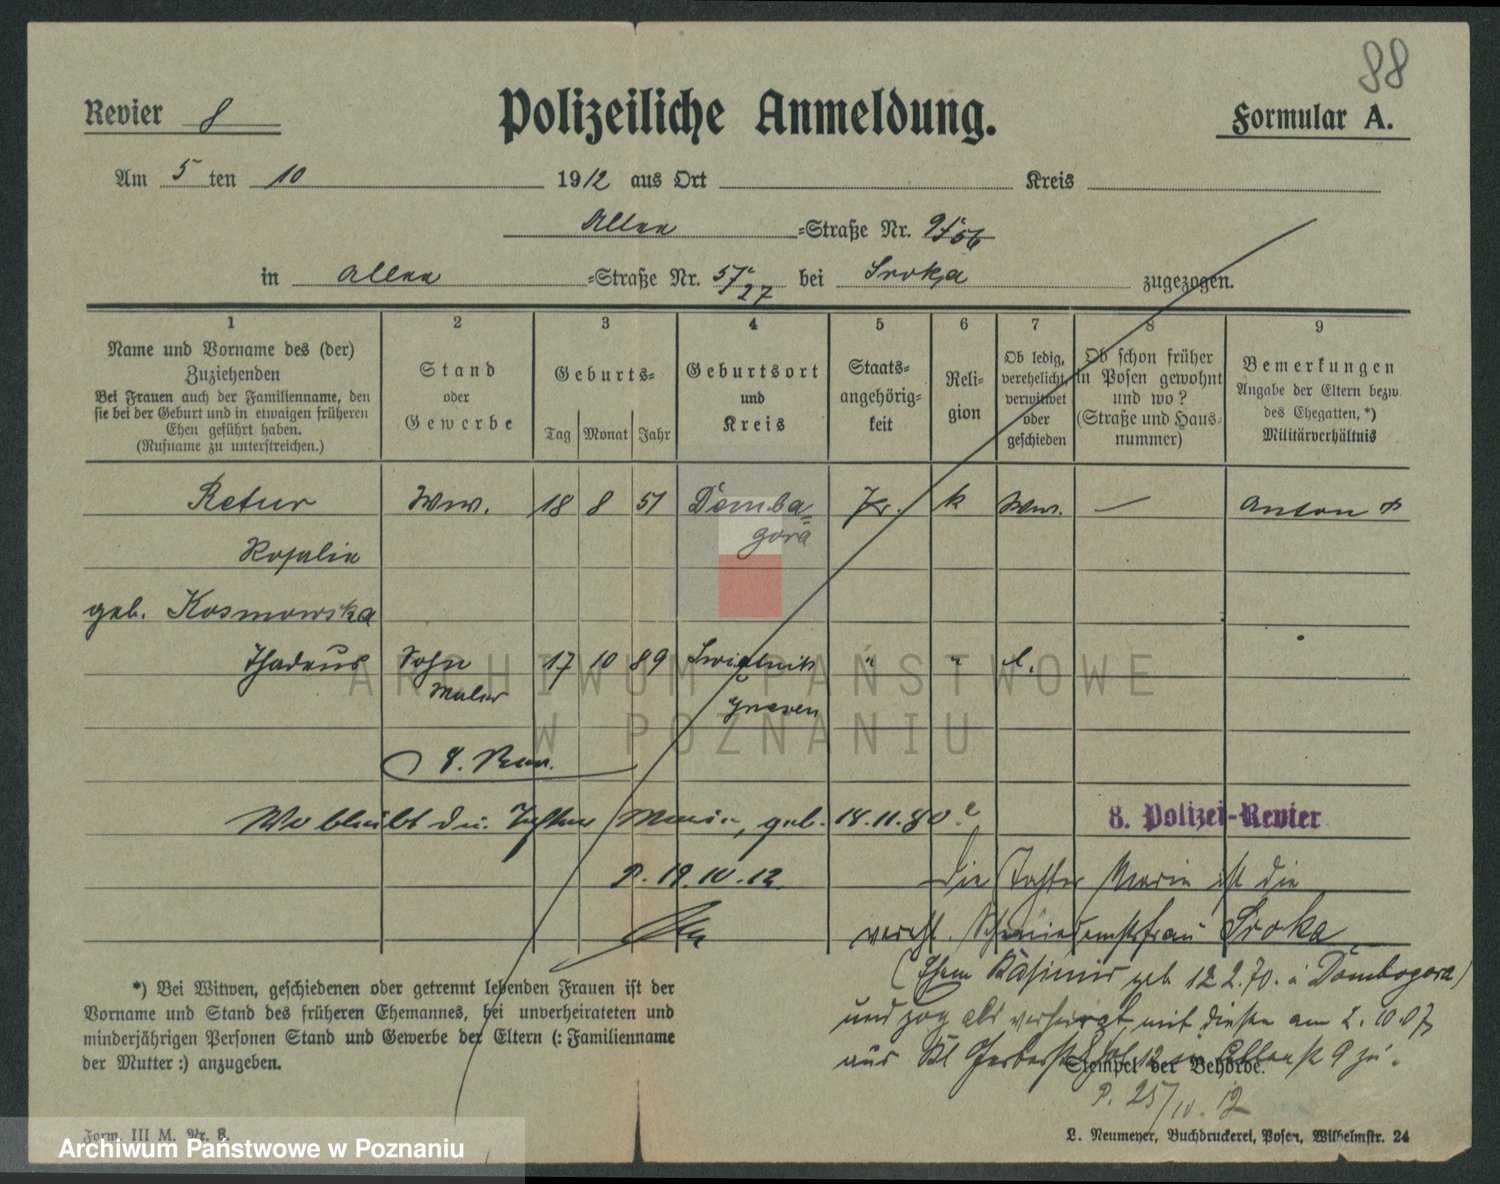 88
Revier 8
Polizeiliche Anmeldung.
Formular A.
Am 5 ten 10 1912 aus Ort Kreis
Allee =Straße Nr.
in Allee =Straße Nr. 57/27 bei Sroka zugezogen.
1 2 3 4 5 6 7 8 9
Name und Vorname des (der) Zuziehenden
Bei Frauen auch der Familienname, den
sie bei der Geburt und in etwaigen früheren
Ehen geführt haben.
(Rufname zu unterstreichen.)
Stand
oder
Gewerbe
Geburts=
Tag Monat Jahr
Geburtsort
und
Kreis
Staats-
angehörig-
keit
Reli-
gion
Ob ledig,
verehelicht,
verwitwet
oder
geschieden
Ob schon früher
in Posen gewohnt
und wo?
(Straße und Haus-
nummer)
Bemerkungen
Angabe der Eltern bezw.
des Ehegatten, *)
Militärverhältnis
Retur Ww. 18 8 51 Domba=
gora Pr. k Ww. — Anton
Rosalie
geb. Kosmowska
Thadeus Sohn 17 10 89 " " l.
Maler
Wo bleibt die Tochter Maria, geb. 18.11.80?
8. Polizei-Revier
P. 19.10.12.
Die Tochter Maria ist die
verehl. Sroka
(Ehem Kasimir geb 12.2.70. i Dombogora)
und zog als verheirat mit diesen am 2.10.07
aus Kl Gerberstr 12 in Allee str 9 zu.
Stempel der Behörde.
P. 25/10.12
*) Bei Witwen, geschiedenen oder getrennt lebenden Frauen ist der
Vorname und Stand des früheren Ehemannes, bei unverheirateten und
minderjährigen Personen Stand und Gewerbe der Eltern (: Familienname
der Mutter :) anzugeben.
Form. III M. Nr. 8.
L. Neumeyer, Buchdruckerei, Posen, Wilhelmstr. 24
ARCHIWUM PAŃSTWOWE
W POZNANIU
Archiwum Państwowe w Poznaniu